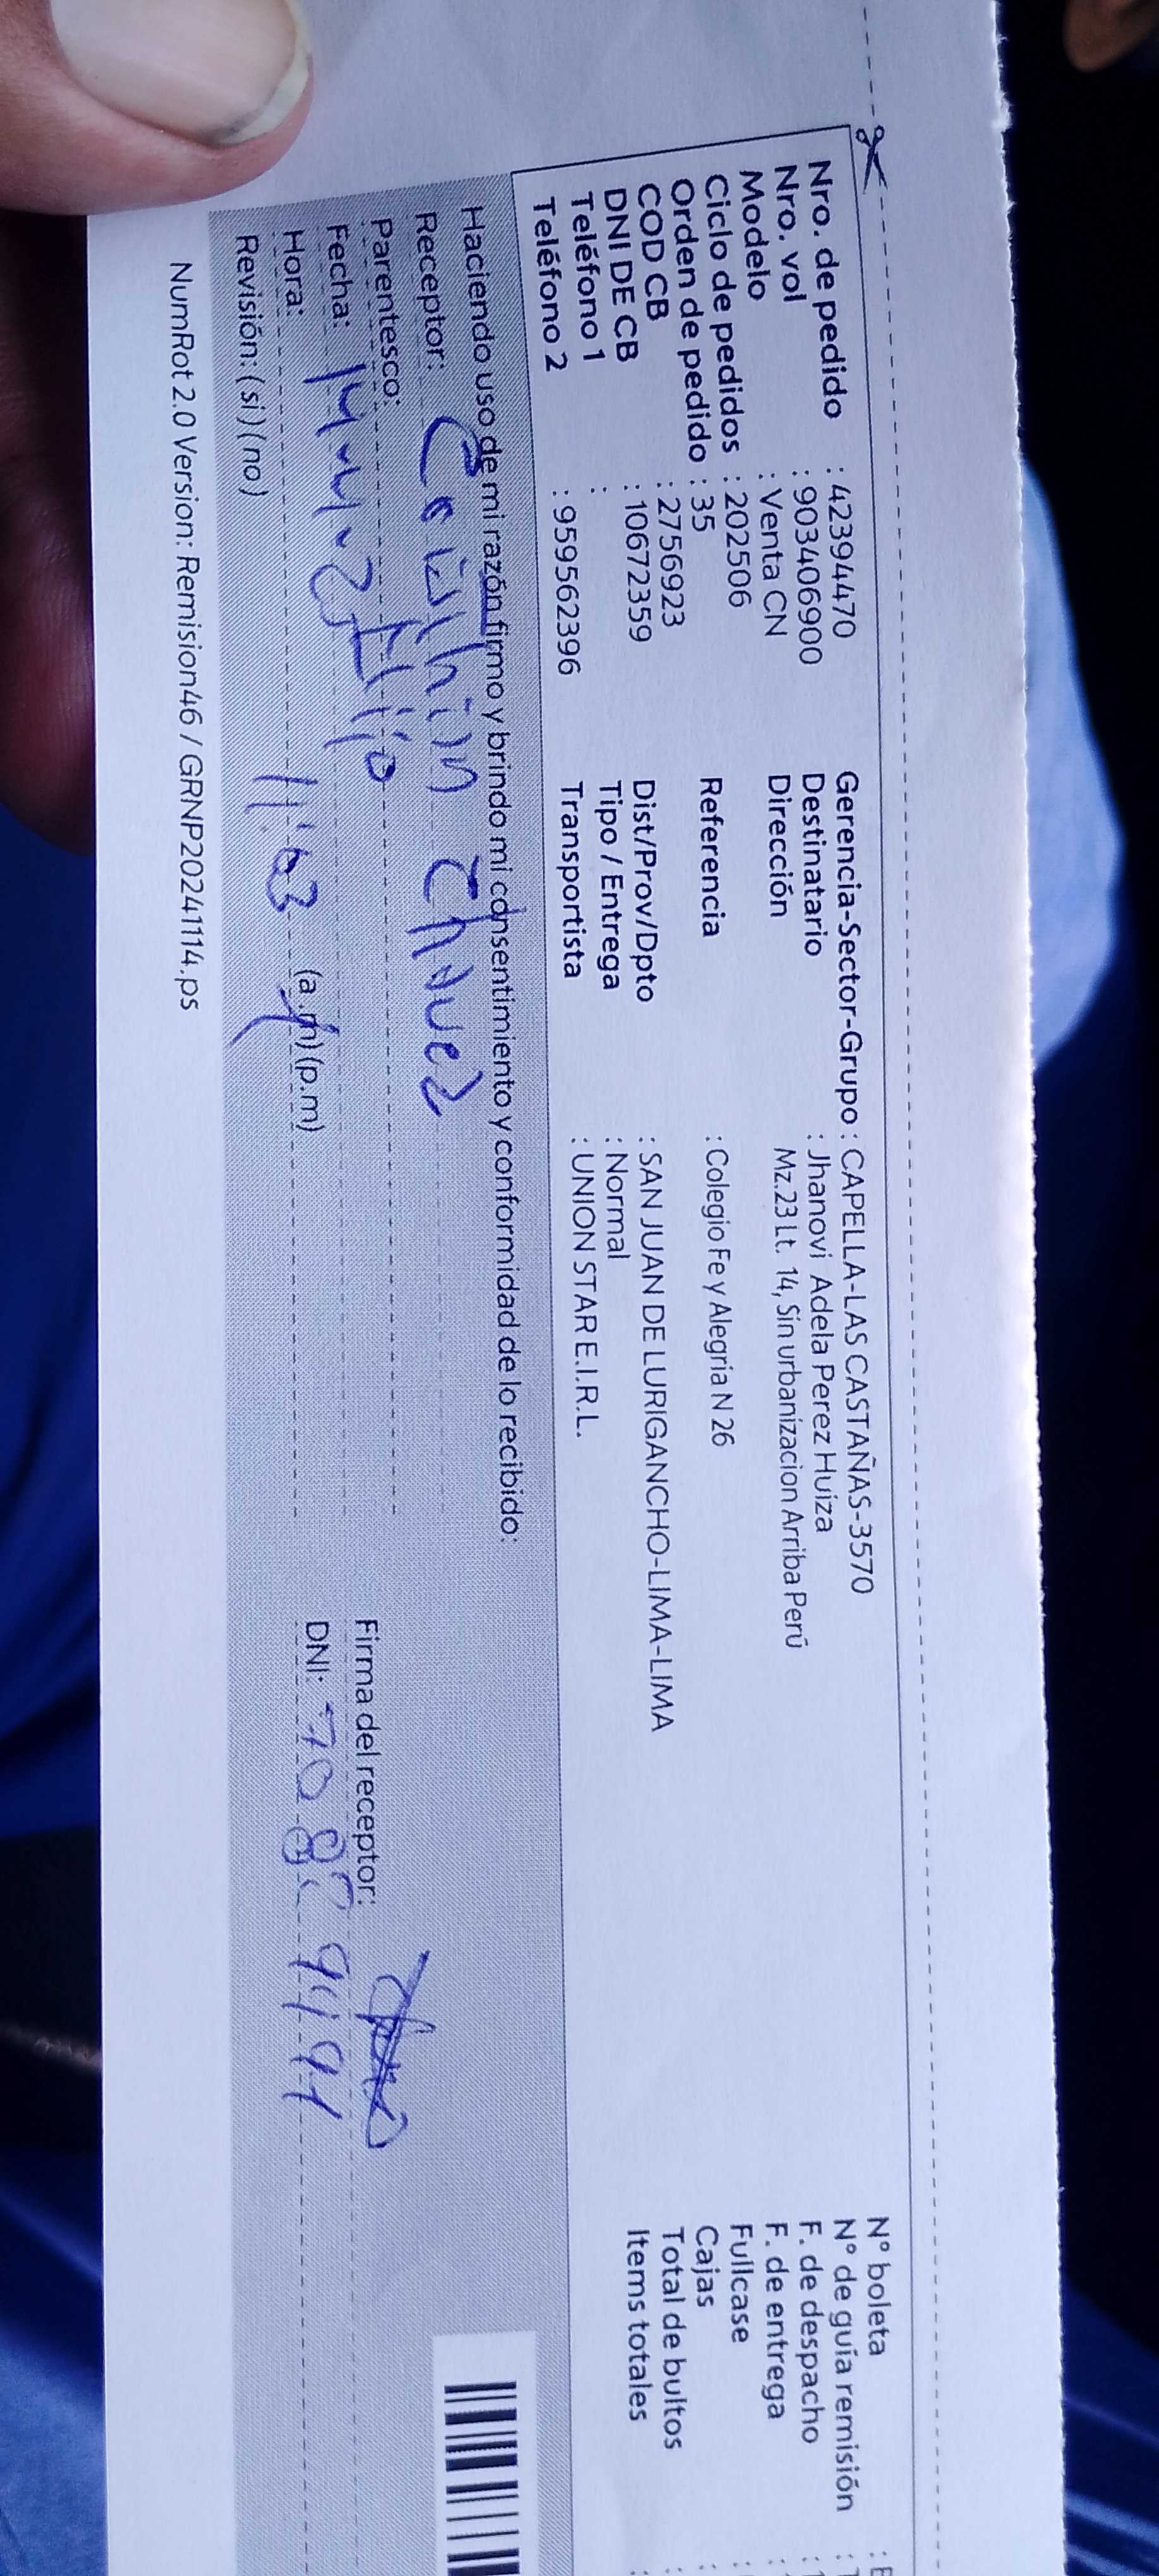 Nro. de pedido : 42394470
Nro. vol : 903406900
Modelo : Venta CN
Ciclo de pedidos : 202506
Orden de pedido : 35
COD CB : 2756923
DNI DE CB : 10672359
Teléfono 1 :
Teléfono 2 : 959562396
Gerencia-Sector-Grupo : CAPELLA-LAS CASTAÑAS-3570
Destinatario : Jhanovi Adela Perez Huiza
Dirección Mz.23 Lt. 14, Sin urbanizacion Arriba Perú
Referencia : Colegio Fe y Alegria N 26
Dist/Prov/Dpto : SAN JUAN DE LURIGANCHO-LIMA-LIMA
Tipo / Entrega : Normal
Transportista : UNION STAR E.I.R.L.
N° boleta :
N° de guía remisión :
F. de despacho :
F. de entrega :
Fullcase :
Cajas :
Total de bultos :
Items totales :
Haciendo uso de mi razón firmo y brindo mi consentimiento y conformidad de lo recibido:
Receptor: Chavez
Parentesco: Hijo
Fecha:
Hora: 11:03 (a.m) (p.m)
Revisión: (si) (no)
Firma del receptor:
DNI:
NumRot 2.0 Version: Remision46 / GRNP20241114.ps